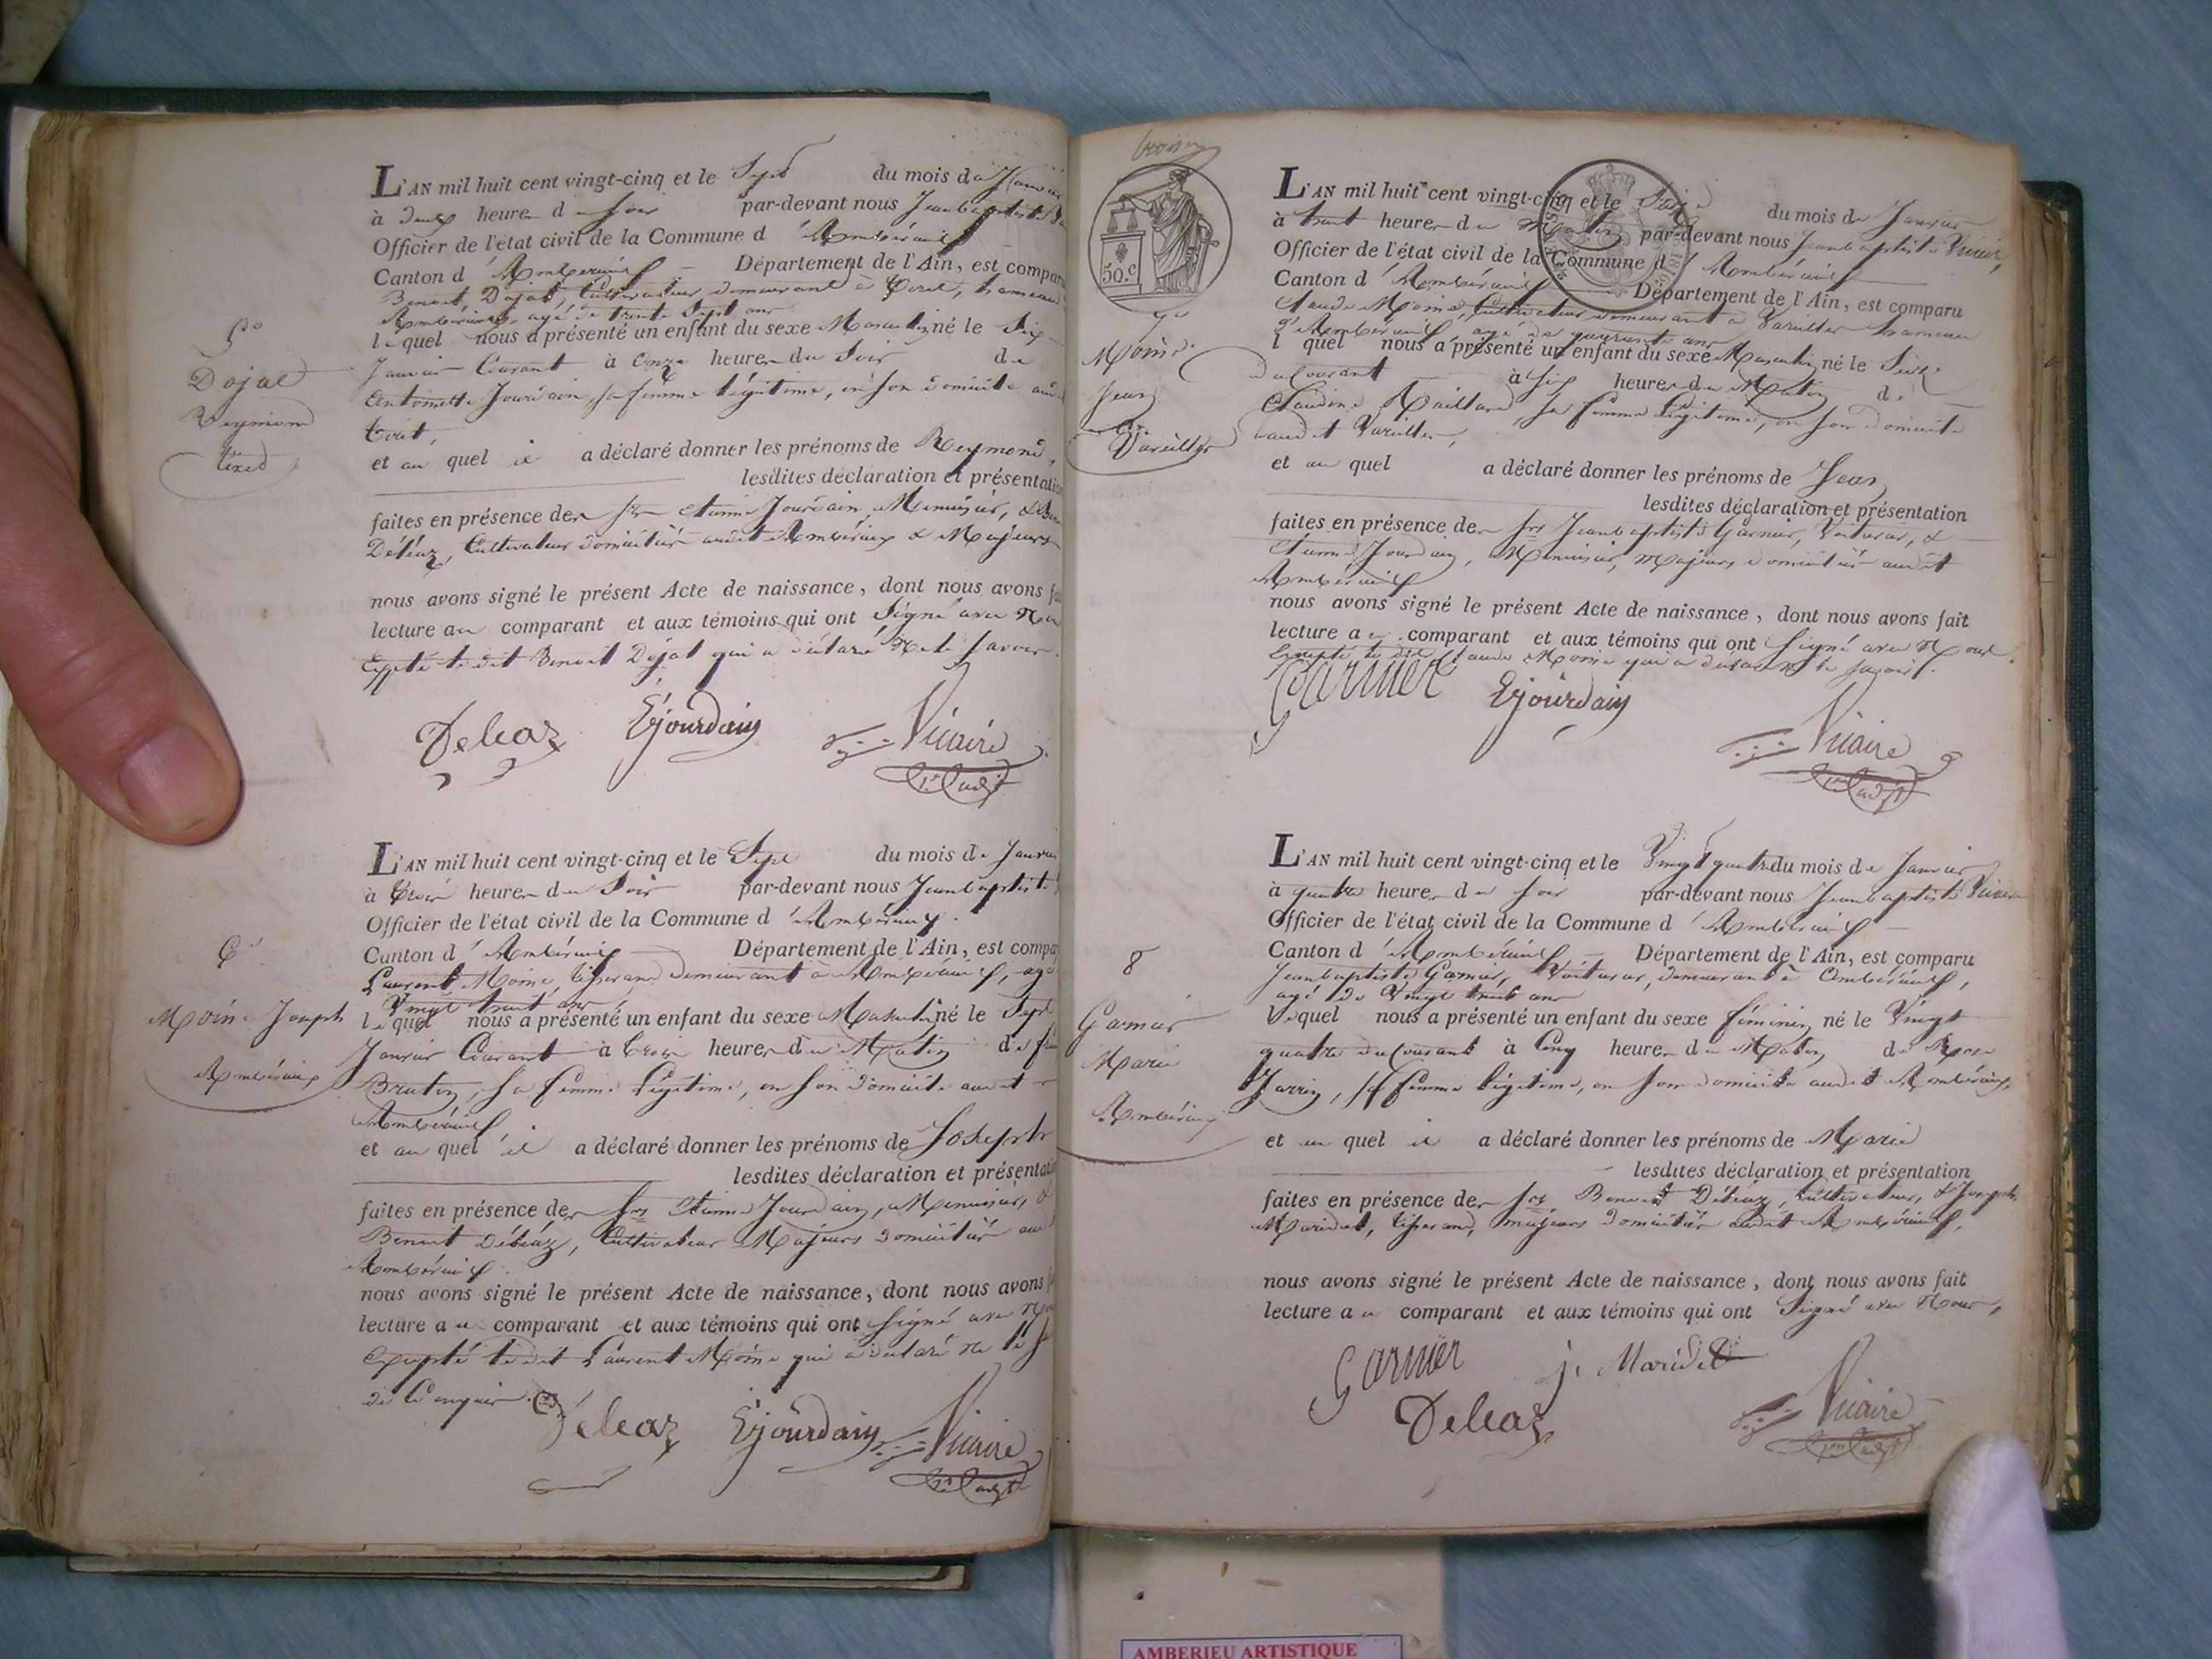 L'AN mil huit cent vingt-cinq et le Sept du mois de Janvier
à deux heures du Soir par-devant nous Jean baptiste
Officier de l'état civil de la Commune d'Ambérieux
Canton d'Ambérieux Département de l'Ain, est compar
Benoit Dojat, Cultivateur demeurant à Tiret, hameau
Ambérieux, agé de trente Sept ans
lequel nous a présenté un enfant du sexe Masculin né le Six
Janvier Courant à onze heures du Soir de
Antoinette Jourdain, sa femme légitime, en son domicile audit
Tiret,
et auquel il a déclaré donner les prénoms de Reymond,
lesdites déclaration et présentation
faites en présence des Srs Etienne Jourdain, Menuisier, &
Déléaz, Cultivateur domiciliés audit Ambérieux & Majeurs
nous avons signé le présent Acte de naissance, dont nous avons fait
lecture au comparant et aux témoins qui ont Signé avec Nous
Excepté le dit Benoit Dojat qui a déclaré Ne le Savoir.
Deleaz EJourdain Vicaire
5e
Dojat
Reymond
Tiret
L'AN mil huit cent vingt-cinq et le Sept du mois de Janvier
à trois heures du Soir par-devant nous Jean baptiste
Officier de l'état civil de la Commune d'Ambérieux.
Canton d'Ambérieux Département de l'Ain, est compa
Laurent Moine, tisserand demeurant à Ambérieux, agé
Vingt huit ans
lequel nous a présenté un enfant du sexe Masculin né le Sept
Janvier Courant à trois heures du Matin de
sa femme Légitime, en son domicile audit
Ambérieux
et auquel il a déclaré donner les prénoms de Joseph
lesdites déclaration et présentation
faites en présence des Srs Etienne Jourdain, Menuisier, &
Benoit Déléaz, Cultivateur Majeurs domiciliés audit
Ambérieux.
nous avons signé le présent Acte de naissance, dont nous avons
lecture au comparant et aux témoins qui ont Signé avec Nous
Excepté le dit Laurent Moine qui a déclaré ne le
de ce enquis.
Deleaz EJourdain Vicaire
6e
Moine Joseph
Ambérieux
50.c
L'AN mil huit cent vingt-cinq et le Seize du mois de Janvier
à huit heures du Matin par-devant nous Jean baptiste Vicaire,
Officier de l'état civil de la Commune d'Ambérieux
Canton d'Ambérieux Département de l'Ain, est comparu
Claude Moine, Cultivateur demeurant à Vareilles hameau
d'Ambérieux agé de quarante ans
lequel nous a présenté un enfant du sexe Masculin né le Seize
du Courant à Six heures du Matin de
Claudine Maillard, sa femme Légitime, en son domicile
audit Vareilles,
et auquel a déclaré donner les prénoms de Jean
lesdites déclaration et présentation
faites en présence des Srs Jean baptiste Garnier, Voiturier, &
Etienne Jourdain, Menuisier, Majeurs domiciliés audit
Ambérieux
nous avons signé le présent Acte de naissance, dont nous avons fait
lecture au comparant et aux témoins qui ont Signé avec Nous.
Excepté le dit Claude Moine qui a déclaré ne le Savoir.
Garnier EJourdain Vicaire
7e
Moine
Jean
Vareilles
L'AN mil huit cent vingt-cinq et le Vingt quatre du mois de Janvier
à quatre heures du Soir par-devant nous Jean baptiste Vicaire
Officier de l'état civil de la Commune d'Ambérieux
Canton d'Ambérieux Département de l'Ain, est comparu
Jean baptiste Garnier, Voiturier, demeurant à Ambérieux,
agé de Vingt huit ans
lequel nous a présenté un enfant du sexe féminin né le Vingt
quatre du Courant à Cinq heures du Matin de Rose
Jarrin, sa femme légitime, en son domicile audit Ambérieux,
et auquel il a déclaré donner les prénoms de Marie
lesdites déclaration et présentation
faites en présence des Srs Benoit Déléaz, Cultivateur, & Joseph
Maridet, tisserand, majeurs domiciliés audit Ambérieux,
nous avons signé le présent Acte de naissance, dont nous avons fait
lecture au comparant et aux témoins qui ont Signé avec Nous,
Garnier j. Maridet
Deleaz Vicaire
8
Garnier
Marie
Ambérieux
AMBERIEU ARTISTIQUE